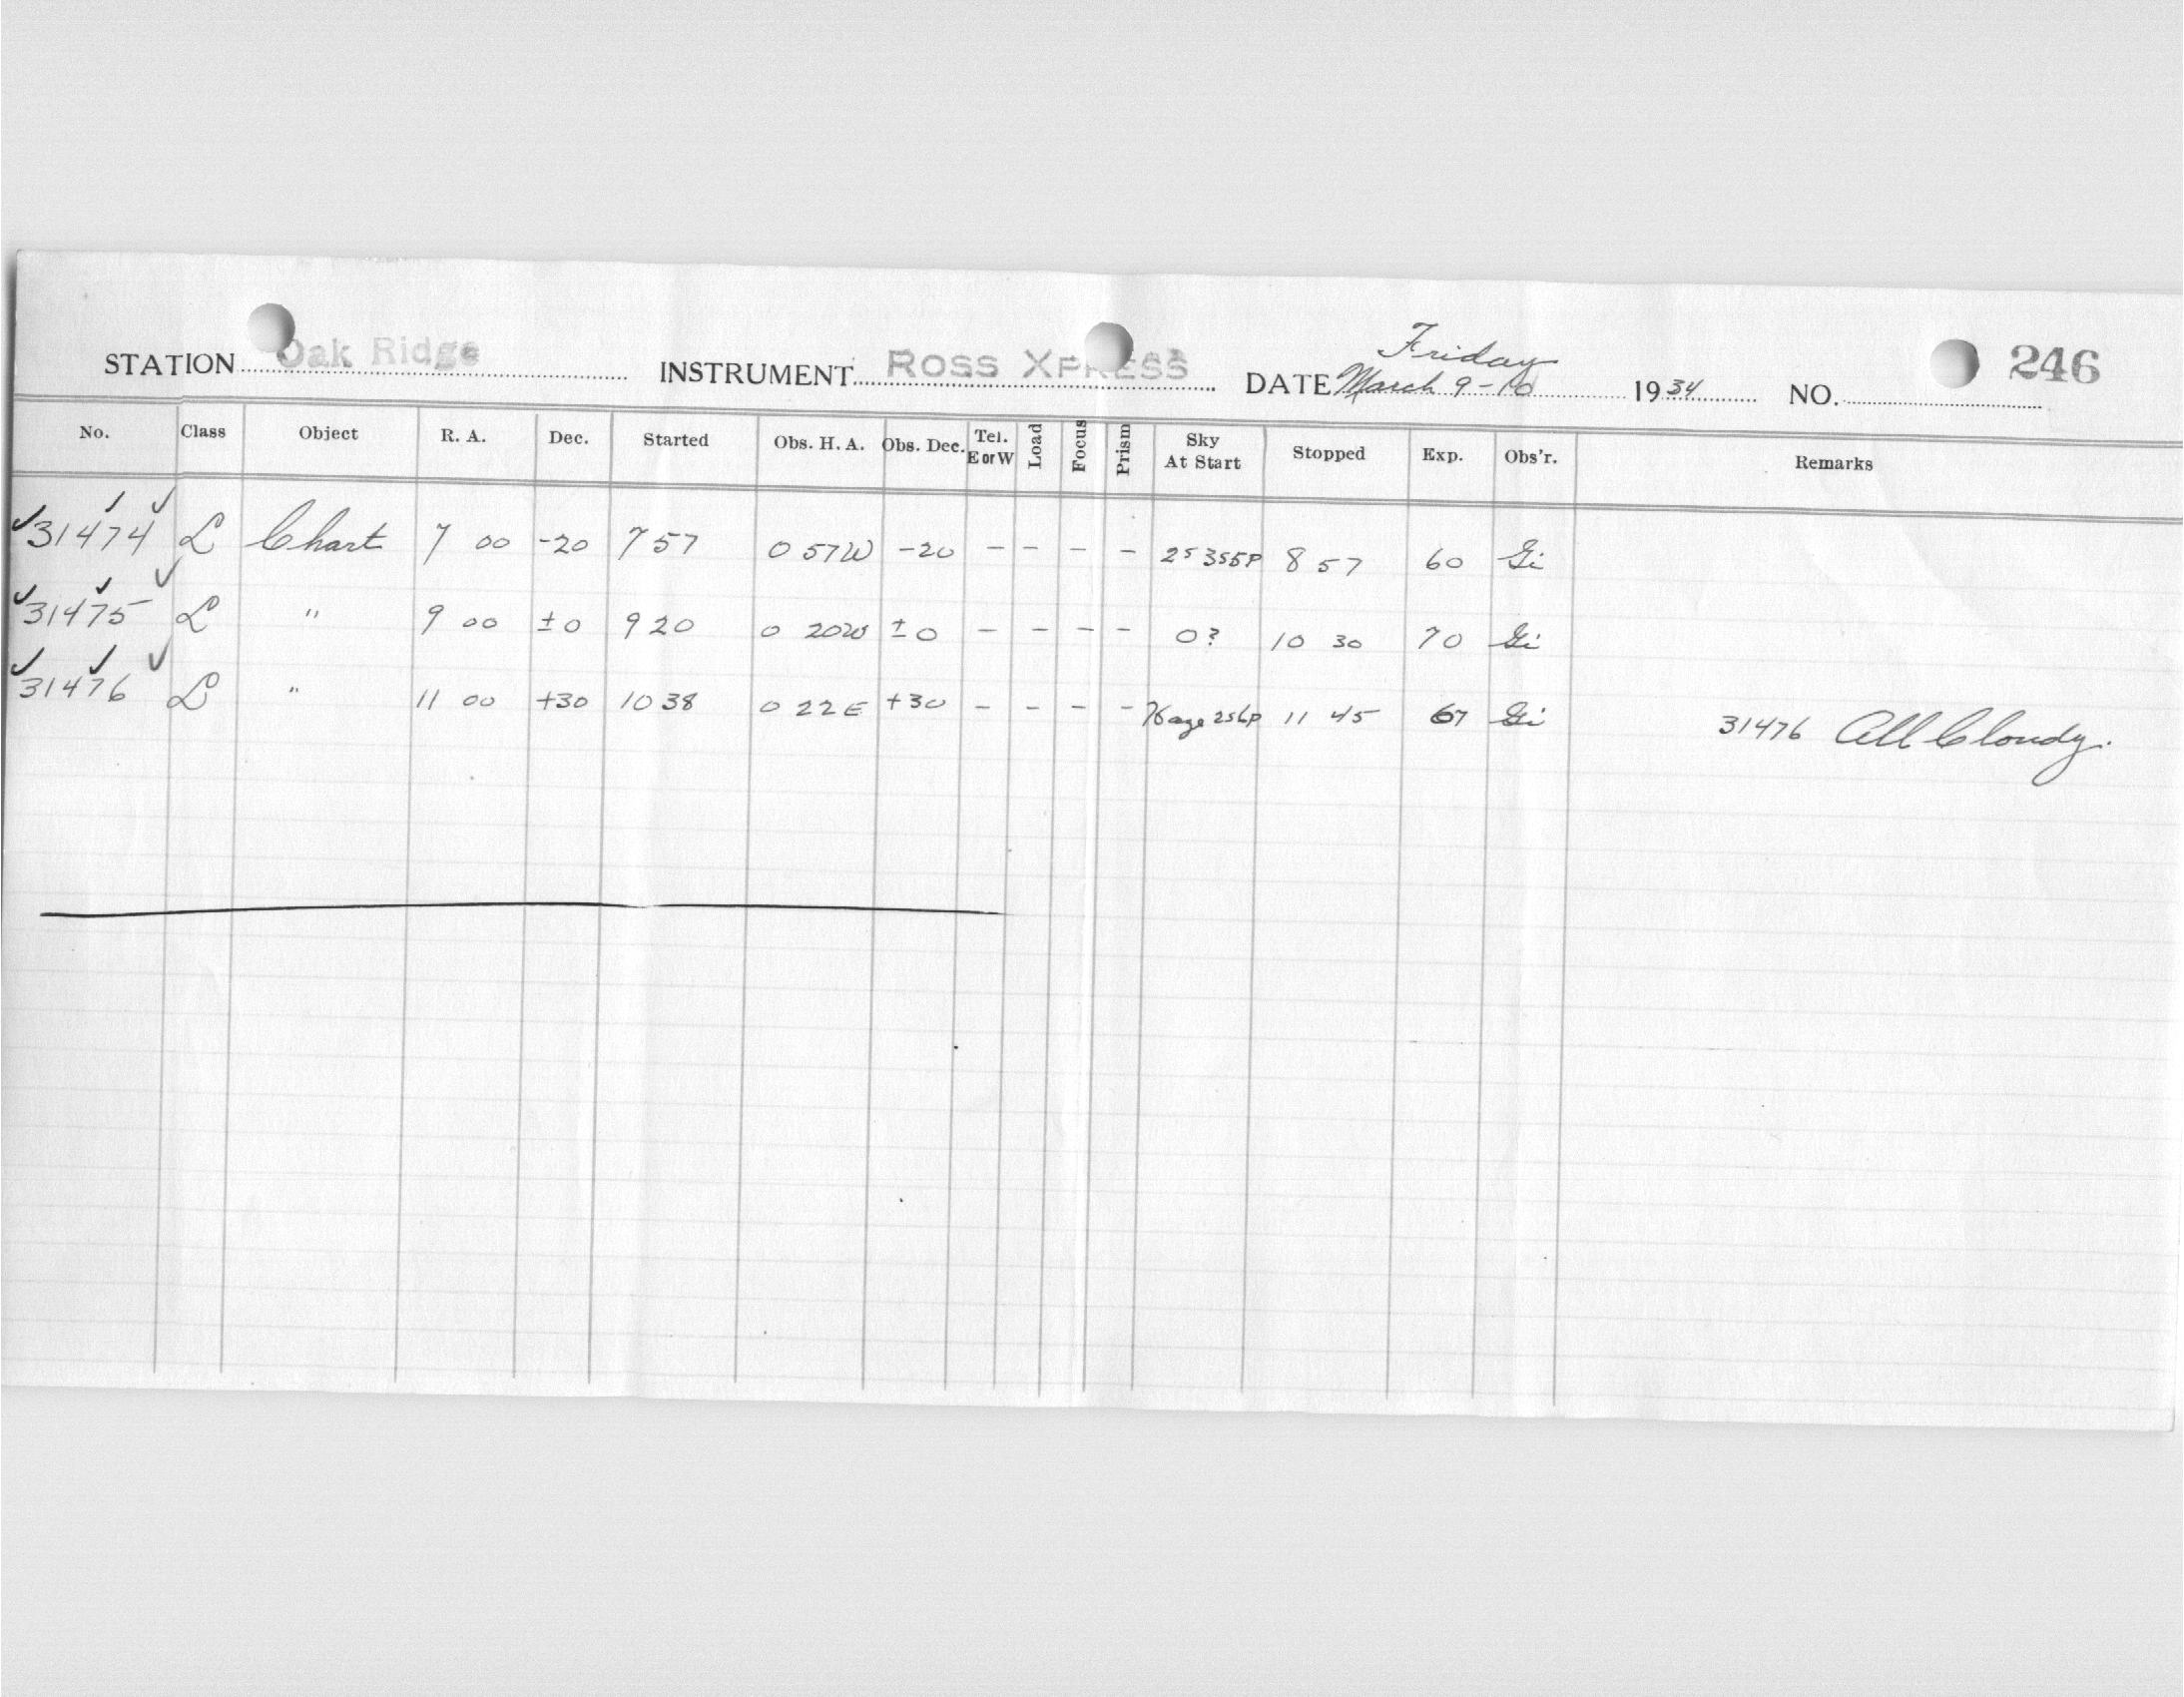 Friday
STATION Oak Ridge INSTRUMENT Ross Xpress DATE March 9-10 1934 NO. 246
No. Class Object R. A. Dec. Started Obs. H. A. Obs. Dec. Tel. E or W Load Focus Prism Sky At Start Stopped Exp. Obs'r. Remarks
31474 L Chart 7 00 -20 7 57 0 57W -20 - - - - 8 57 60 Gi
31475 L " 9 00 ±0 9 20 0 20W ±0 - - - - 0? 10 30 70 Gi
31476 L " 11 00 +30 10 38 0 22E +30 - - - - 11 45 67 Gi 31476 All Cloudy.